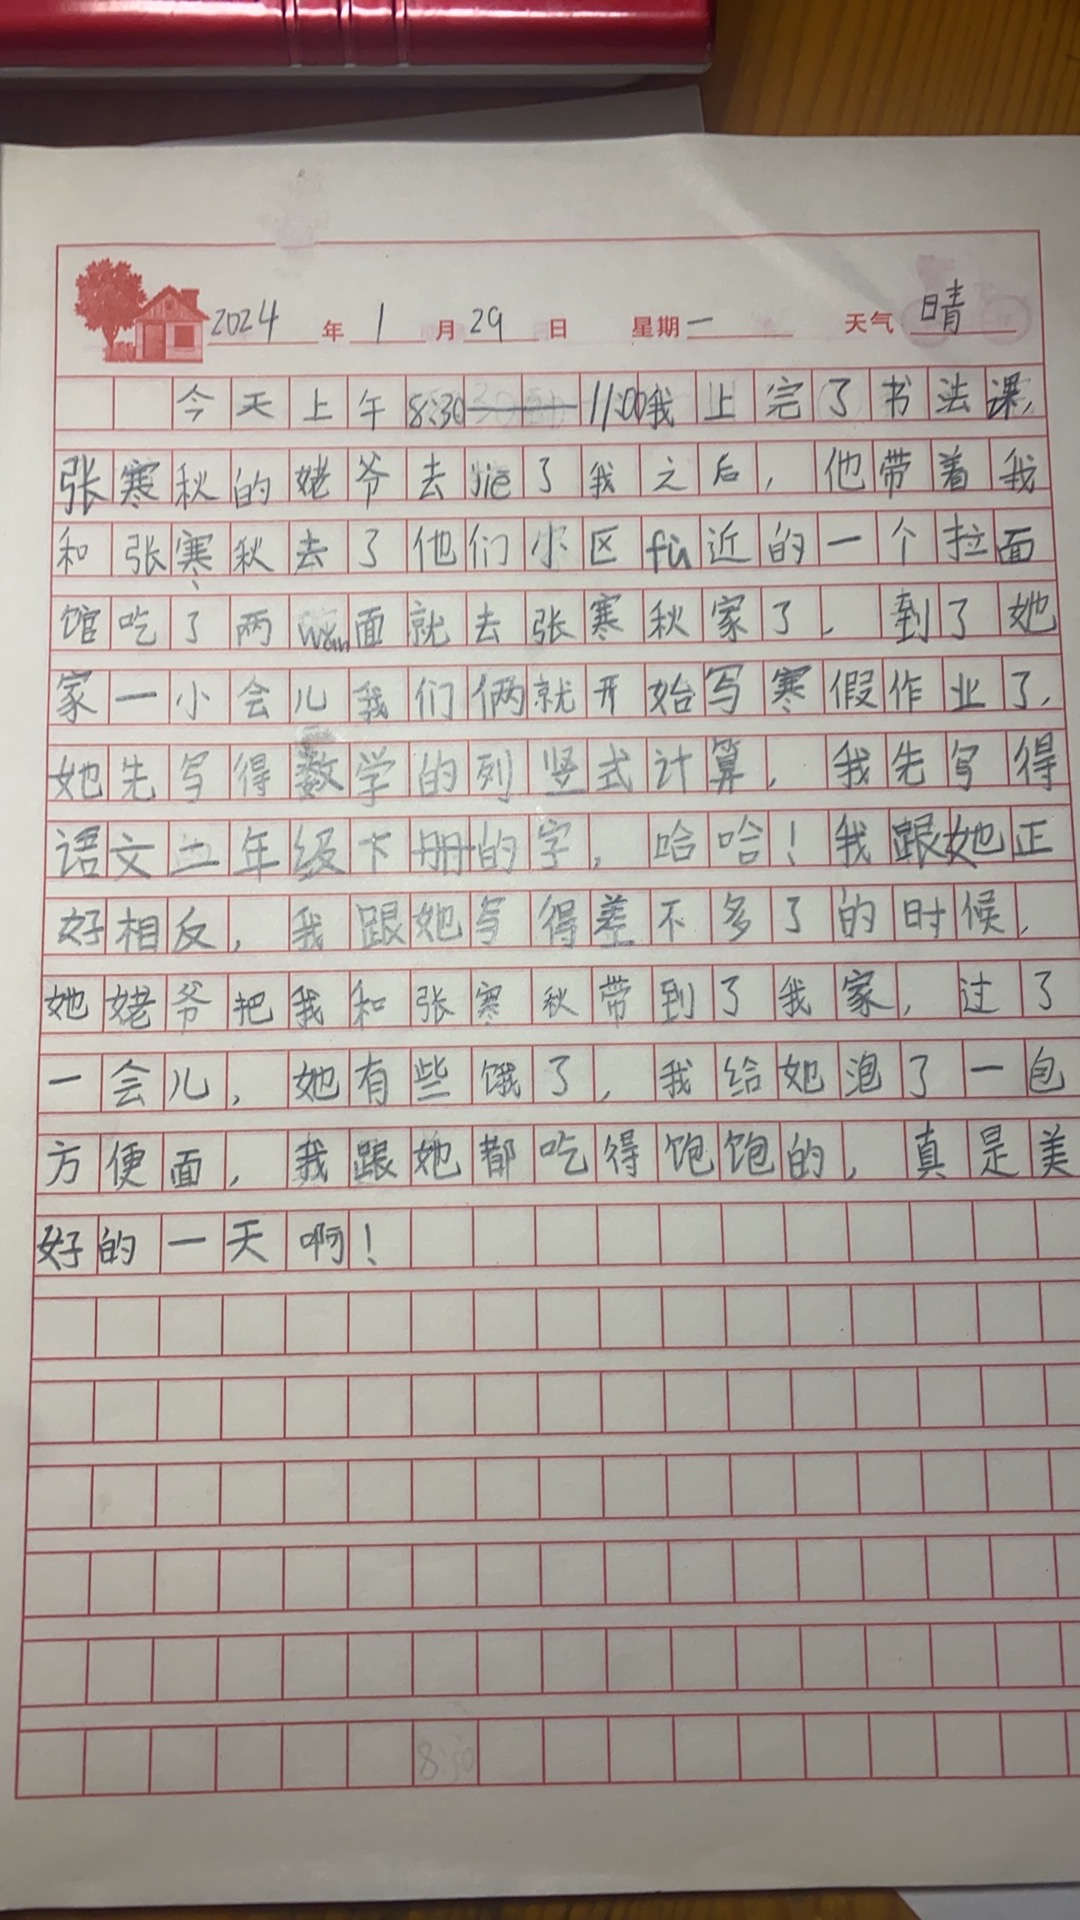 2024年1月29日 星期一 天气 晴
今天上午8:30——11:00我上完了书法课，
张寒秋的姥爷去jiē了我之后，他带着我
和张寒秋去了他们小区fù近的一个拉面
馆吃了两wǎn面就去张寒秋家了。到了她
家一小会儿我们俩就开始写寒假作业了，
她先写得数学的列竖式计算，我先写得
语文二年级下册的字，哈哈！我跟她正
好相反，我跟她写得差不多了的时候，
她姥爷把我和张寒秋带到了我家，过了
一会儿，她有些饿了，我给她泡了一包
方便面，我跟她都吃得饱饱的，真是美
好的一天啊！
8:30